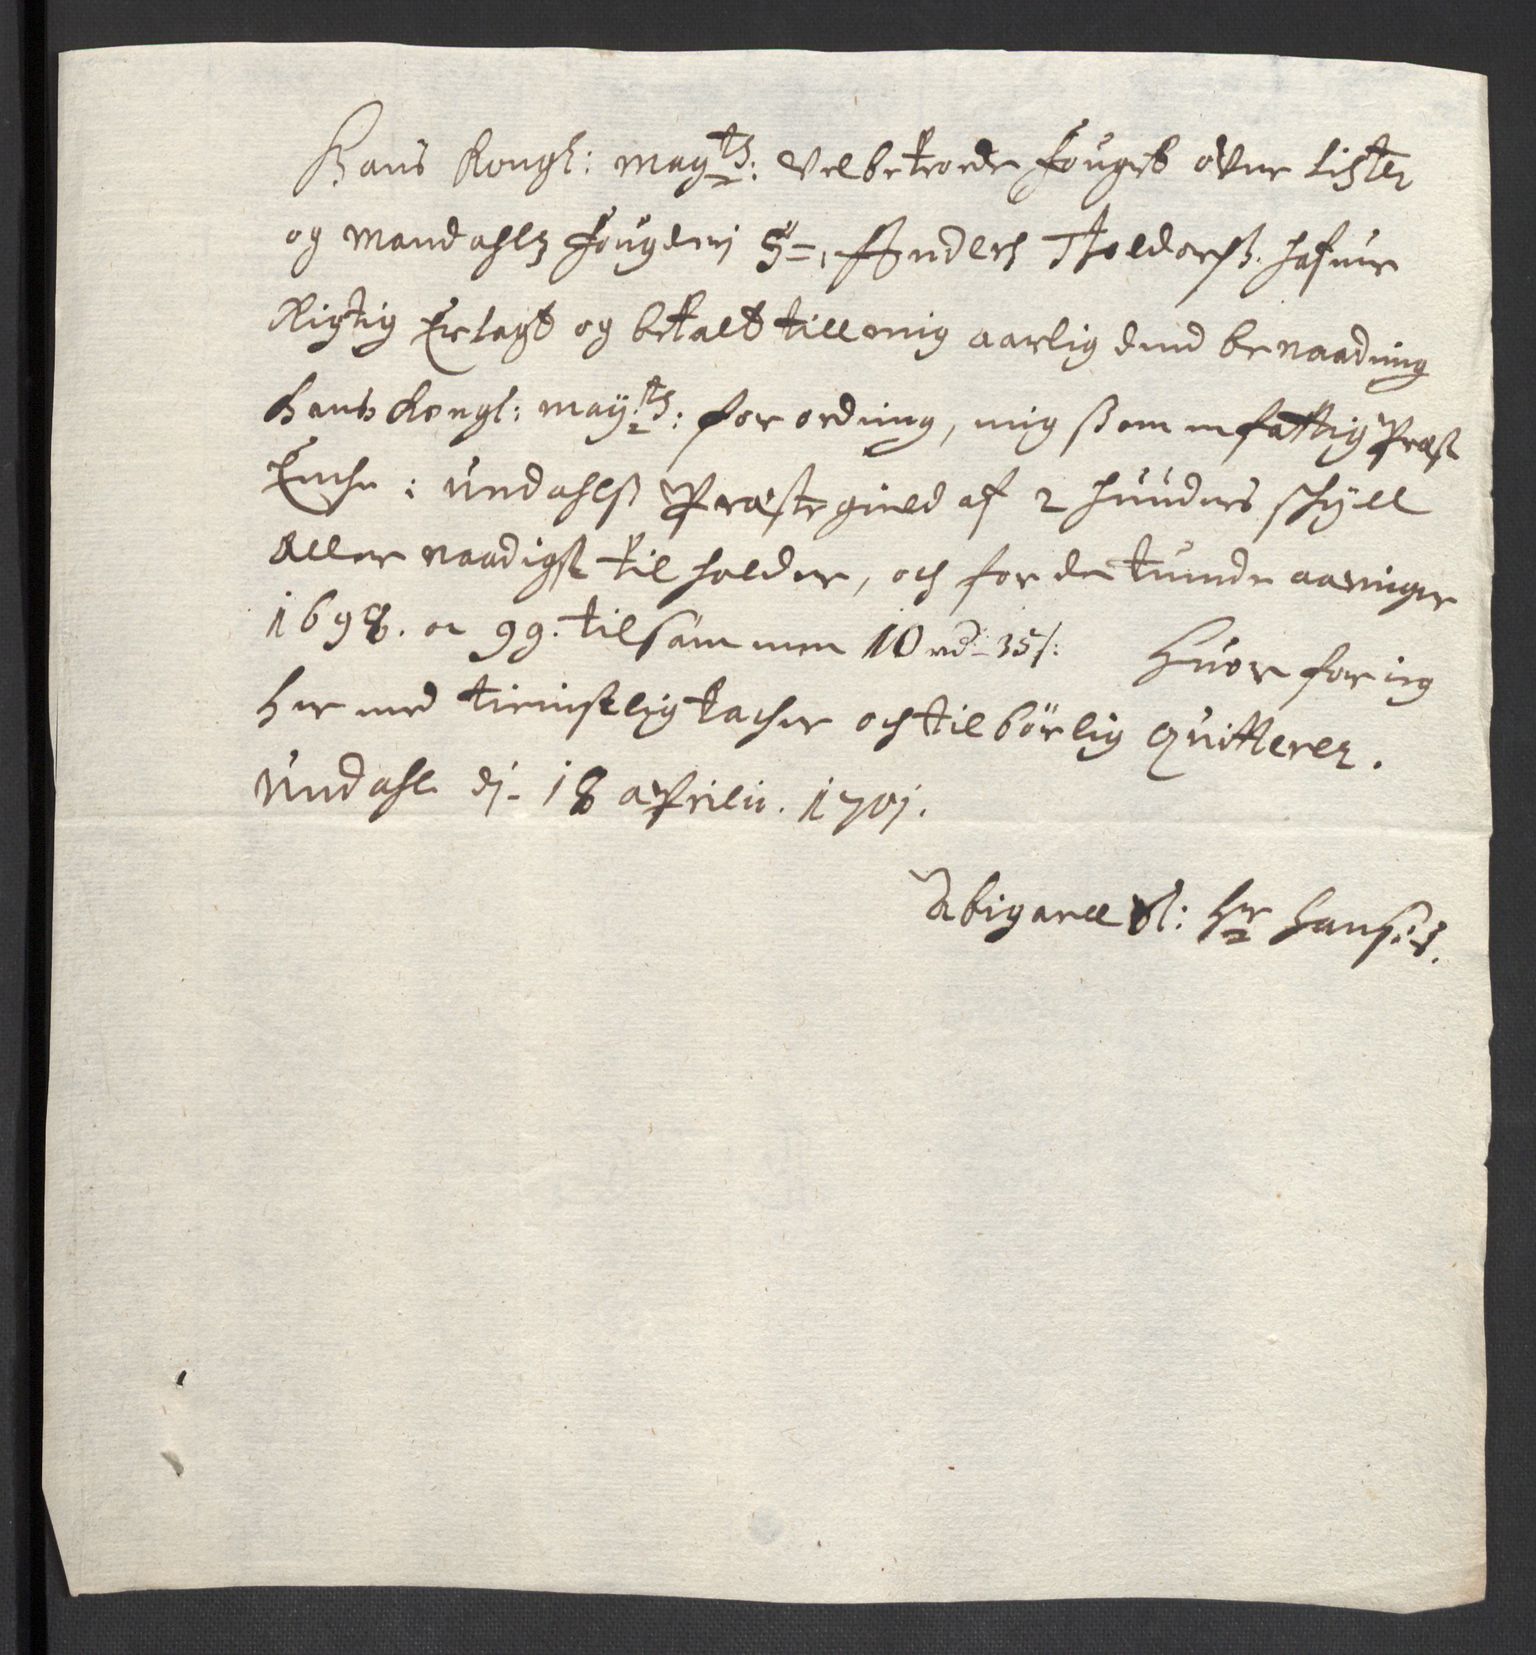 Hans Kongl: mayts: Velbetroede fouget ofuer Lister
og Mandahls fougderj Sr. Anders Toldorph. hafuer
Rigtig Erlagt og betalt till mig aarlig dend benaading
Hans Kongl: mayts: forordning, mig ßom en fattig Præst
Enche i Undahlß Præstegield af 2 hunders schyll
Aller naadigst tilholder, och for de tuende aaringer
1698. oc 99. tilsammen 10 rd 35 s: Huor for ieg
her med tienistlig tacher och tilbörlig Quitterer.
Undahl dj. 18 Aprilii. 1701.
Abigaell Sl: Hr Hanses.